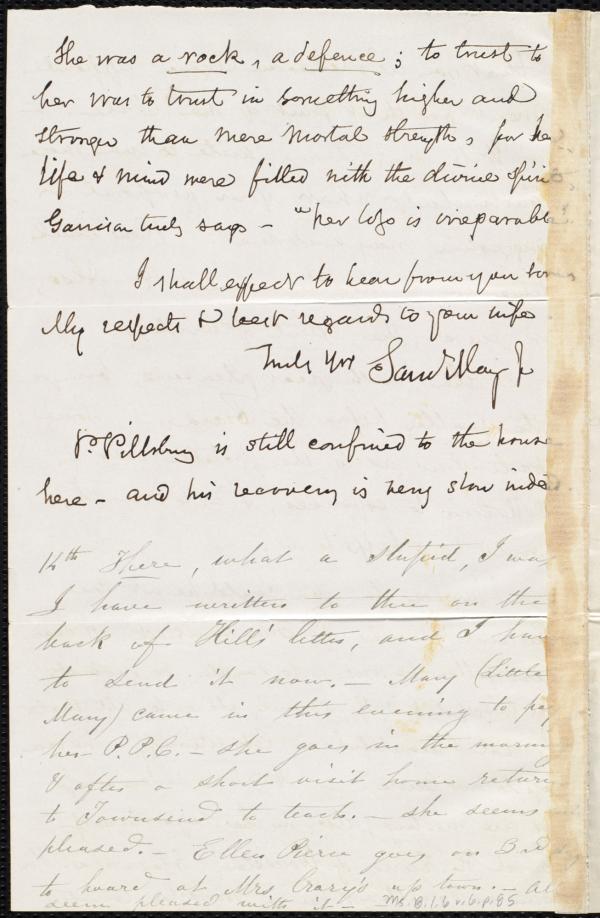 She was a rock, a defence; to trust to
her was to trust in something higher and
stronger than mere mortal strength, for her
life & mind were filled with the divine spirit
Garrison truly says – "her loss is irreparable
I shall expect to hear from you soon
My respects & best regards to your wife
Truly Yrs Saml May Jr
P. Pillsbury is still confined to the house
here – and his recovery is very slow indeed
14th There, what a stupid, I was
I have written to thee on the
back of Hill's letter, and I have
to send it now. – Mary (Little
Mary) came in this evening to pay
her P.P.C. – she goes in the morning
& after a short visit home returns
to Townsend to teach. – she seems
pleased. – Ellen Pierce goes on 3rd day
to board at Mrs Crary's up town. – All
seem pleased with it –
Ms.B.1.6 v.6 p.85